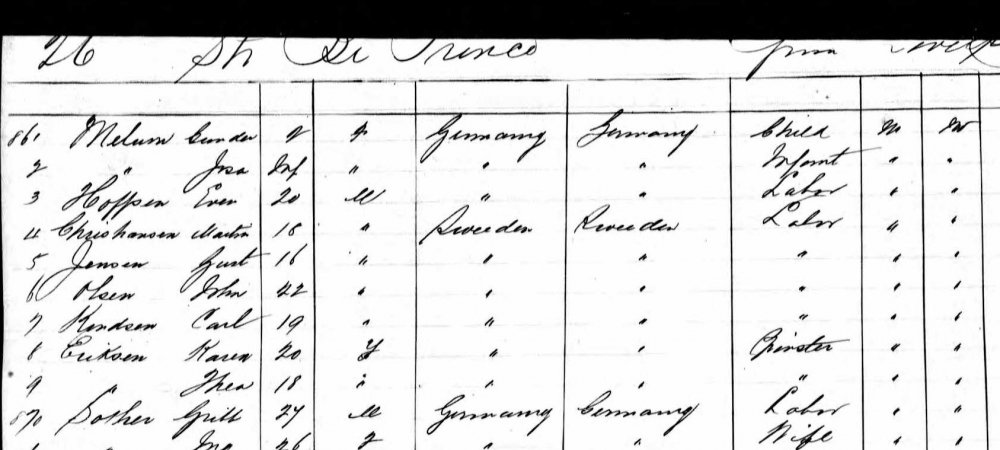 26 Str De Trence from
861 Melum Gunder 9 F Germany Germany Child " "
2 " Josa Inf " " " Infant " "
3 Hoffsen Even 20 M " " Labor " "
4 Christiansen Martin 18 " Sweeden Sweeden Labor " "
5 Jensen Gust 16 " " " " " "
6 Olsen John 22 " " " " " "
7 Kendsen Carl 19 " " " " " "
8 Eriksen Karen 20 F " " Spinster " "
9 " Thea 18 " " " " " "
870 Sother Gritt 27 M Germany Germany Labor " "
" 26 F " " Wife " "